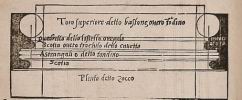 Toro superiore detto bastone, ouero tondino
Quadretto detto listello
Scotia ouero trochilo detto cauetto
Astragali o detto tondino
Scotia
Plinto detto Zocco